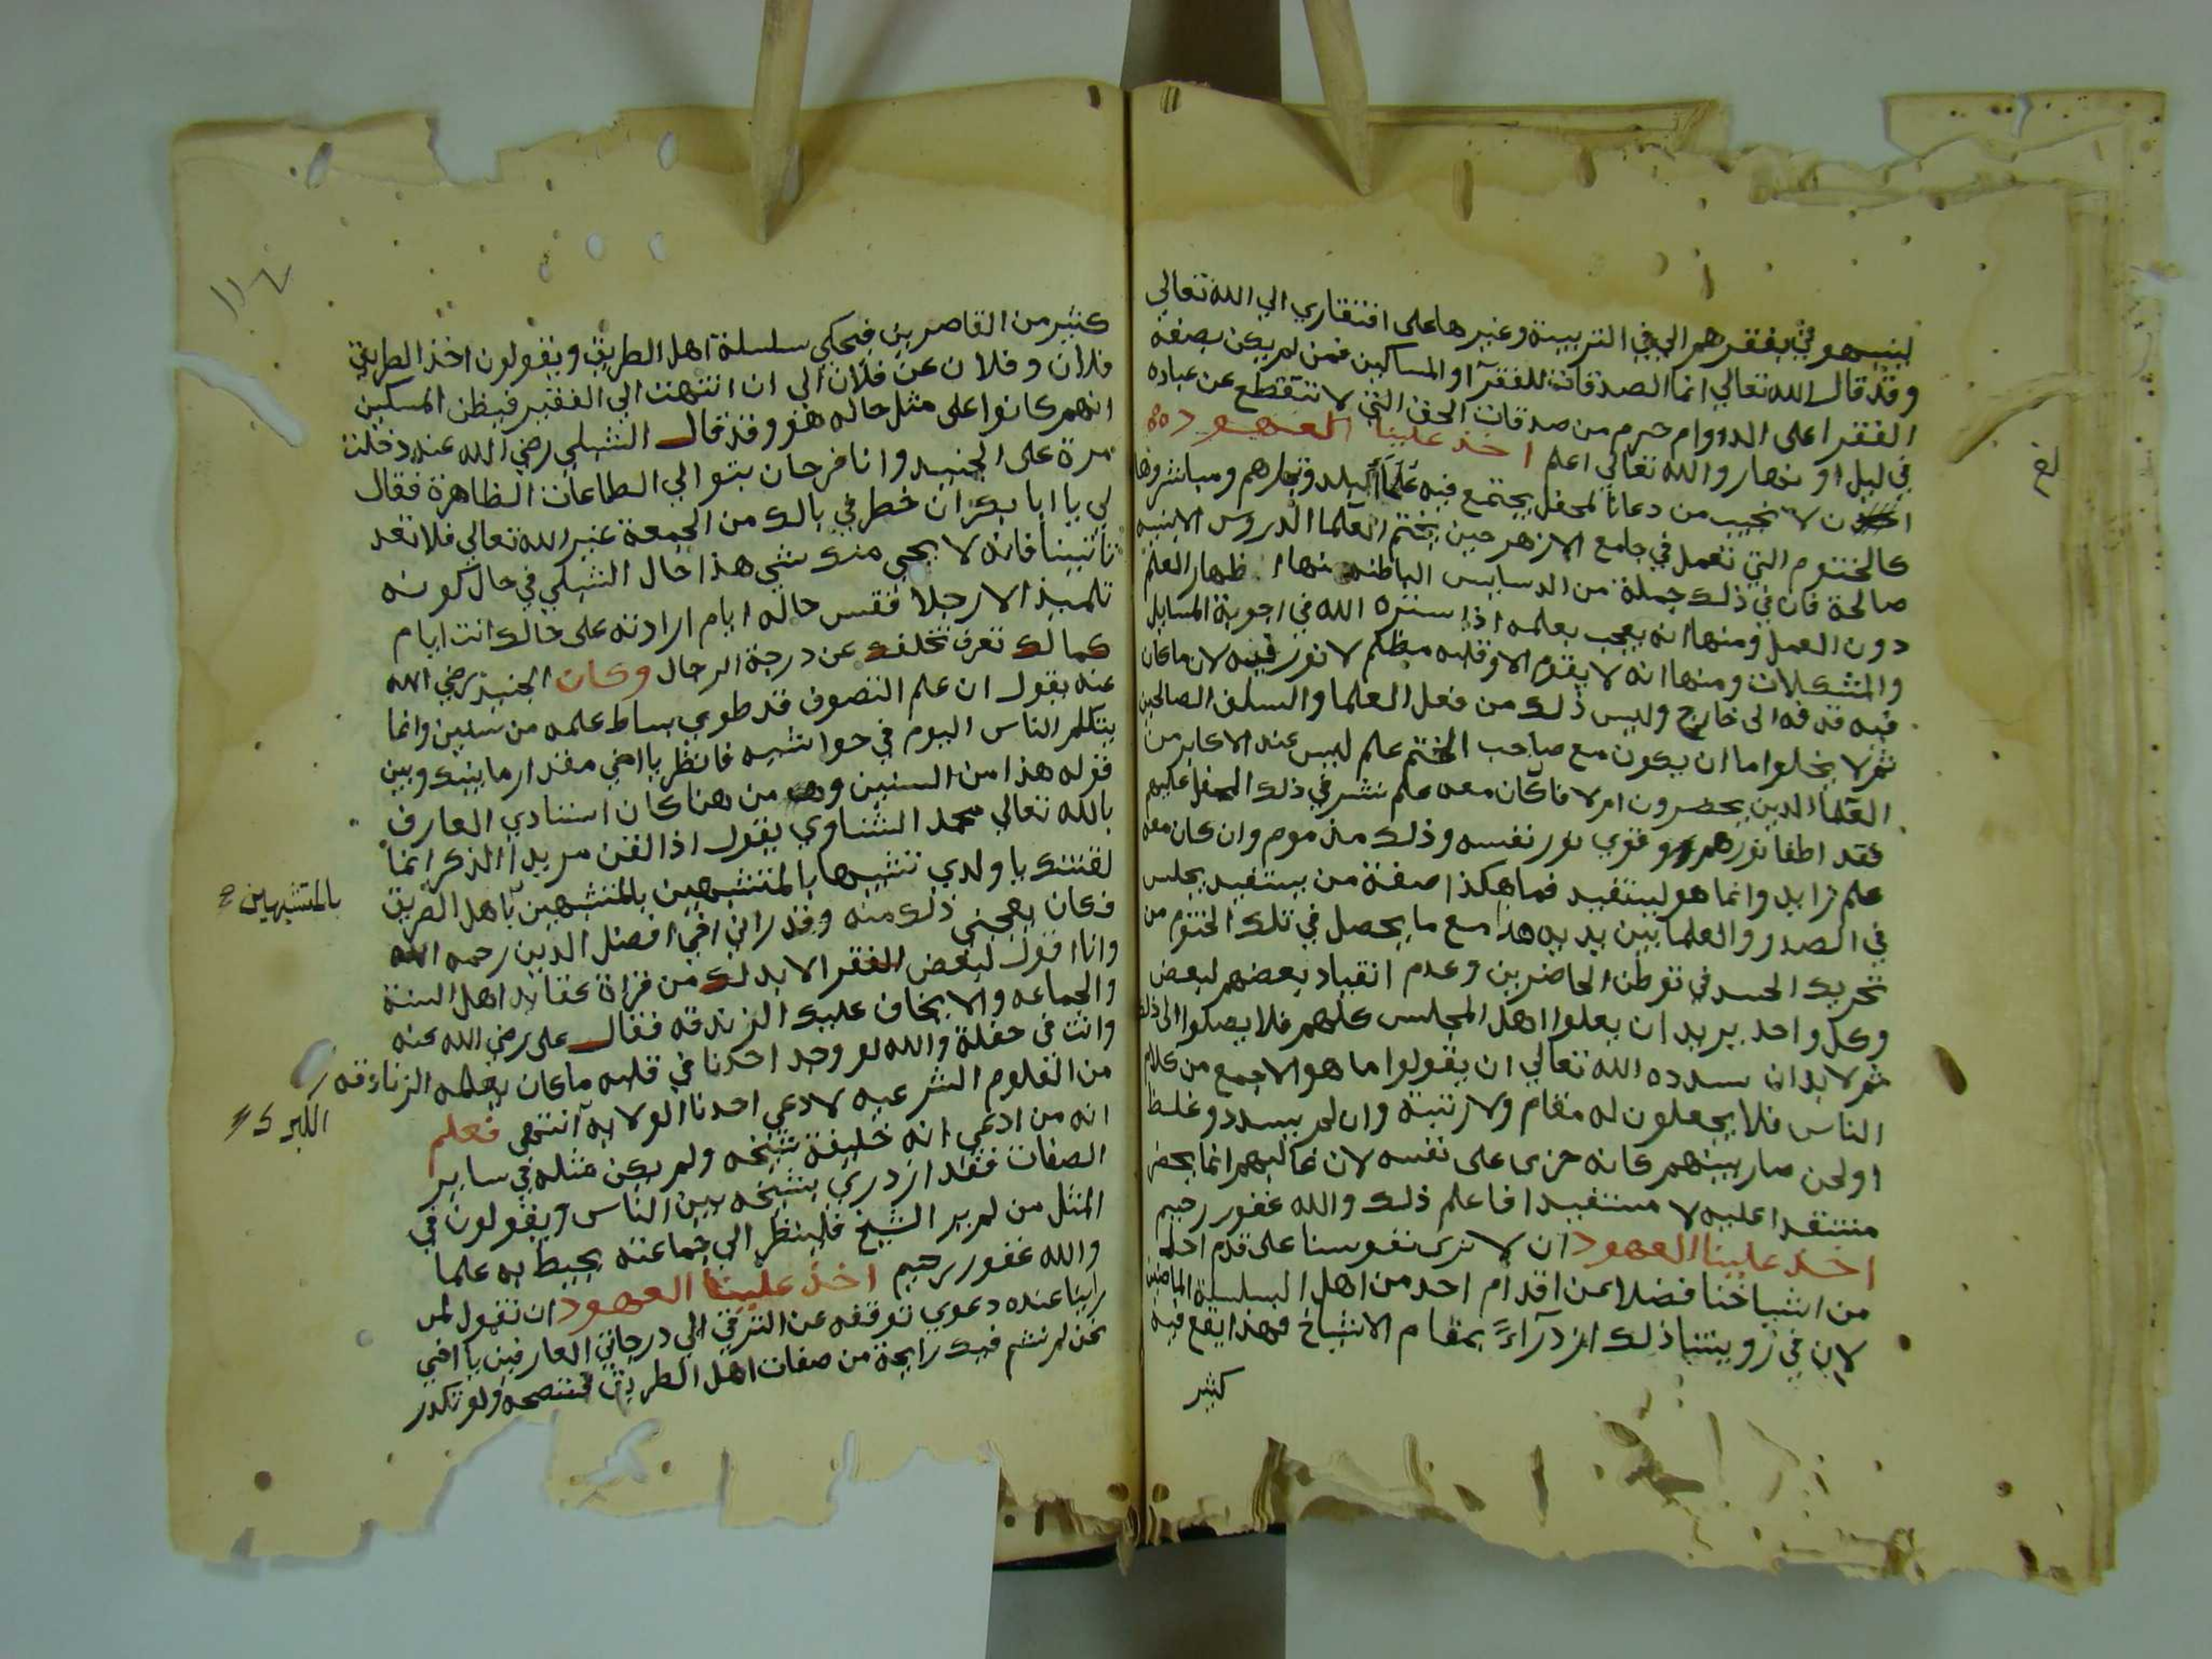 لينبهوني بفقرهم الي في التربية وغيرها على افتقاري الي الله تعالي
وقد قال الله تعالي انما الصدقات للفقرآ والمساكين فمن لم يكن بصفة
الفقرا على الدوام حرم من صدقات الحق التي لا تنقطع عن عباده
في ليل او نهار والله تعالي اعلم اخذ علينا العهود
ان لا نجيب من دعانا لمحفل يجتمع فيه علمآ البلد وتجارهم ومباشروها
كالختوم التي تعمل في جامع الازهر حين يختم العلما الدروس الا بنية
صالحة فان في ذلك جملة من الدسايس الباطنه منها اظهار العلم
دون العمل ومنها انه يعجب بعلمه اذا ستره الله في اجوبة المسايل
والمشكلات ومنها انه لا يقوم الا وقلبه مظلم لا نور فيه لان ما كان
فيه قد فه الى خارج وليس ذلك من فعل العلما والسلف الصالحين
ثم لا يخلوا اما ان يكون مع صاحب الختم علم ليس عند الاكابر من
العلما الدين يحضرون ام لا فا كان معه علم نشر في ذلك المحفل عليهم
فقد اطفا نورهم وقوي نور نفسه وذلك مذموم وان كان معه
علم زايد وانما هو ليستفيد فما هكذا صفة من يستفيد يجلس
في الصدر والعلما بين يديه هذا مع ما يحصل في تلك الختوم من
تحريك الحسد في توطن الحاضرين وعدم انقياد بعضهم لبعض
وكل واحد يريد ان يعلوا اهل المجلس كلهم فلا يصلوا الى ذلك
ثم لا بد ان سدده الله تعالي ان يقولوا ما هو الا جمع من كلام
الناس فلا يجعلون له مقام ولا رتبة وان لم يسدد وغلط
او لحن صار بينهم كانه خزى على نفسه لان غالبهم انما يحضر
منتقدا عليه لا مستفيدا فاعلم ذلك والله غفور رحيم
اخذ علينا العهود ان لا نرى نفوسنا على قدم احد
من اشياخنا فضلا عن اقدام احد من اهل السلسلة الماضين
لان في رويتنا ذلك ازدرآءً بمقام الاشياخ فهذا يقع فيه
كثير
كثير من القاصرين فيحكي سلسلة اهل الطريق ويقولون اخذ الطريق
فلان وفلان عن فلان الي ان انتهت الي الفقير فيظن المسكين
انهم كانوا على مثل حاله هو وقد قال الشبلي رضي الله عنه دخلت
مرة على الجنيد وانا فرحان بتوالي الطاعات الظاهرة فقال
لي يا ابا بكر ان خطر في بالك من الجمعة غير الله تعالي فلا تعد
تاتينا فانه لا يجي منك شي هذا حال الشبلي في حال كونه
تلميذ الا رجلا فقس حاله ايام ارادته على حالك انت ايام
كمالك تعرف تخلفك عن درجة الرجال وكان الجنيد رضي الله
عنه يقول ان علم التصوف قد طوي بساط علمه من سنين وانما
يتكلم الناس اليوم في حواشيه فانظر يا اخي مقدار ما بينك وبين
قوله هذا من السنين ومن هنا كان استادي العارف
بالله تعالي محمد الشناوي يقول اذا لقن مريدا الذكر انما
لقنتك يا ولدي تشبها بالمتشبهين بالمتشبهين باهل الطريق
بالمتشبهين
فكان يعجبني ذلك منه وقد راني اخي افضل الدين رحمه الله
وانا اقول لبعض الفقرا لا بد لك من قراة عقايد اهل السنة
والجماعه والا يخاف عليك الزندقه فقال على رضي الله عنه
وانت في حفلة والله لو وجد احدنا في قلبه ما كان يعلمه الزنادقه
من العلوم الشرعيه لادعى احدنا الولايه انتهى فعلم
انه من ادعي انه خليفة شيخه ولم يكن مثله في ساير
الصفات فقد ازدري بشيخه بين الناس ويقولون في
المثل من لم ير الشيخ فلينظر الي جماعته يحيط به علما
والله غفور رحيم اخذ علينا العهود ان نقول لمن
راينا عنده دعوي توقفه عن الترقي الي درجات العارفين يا اخي
نحن لم نشم فيك رايحة من صفات اهل الطريق فننصحه ولو تكدر